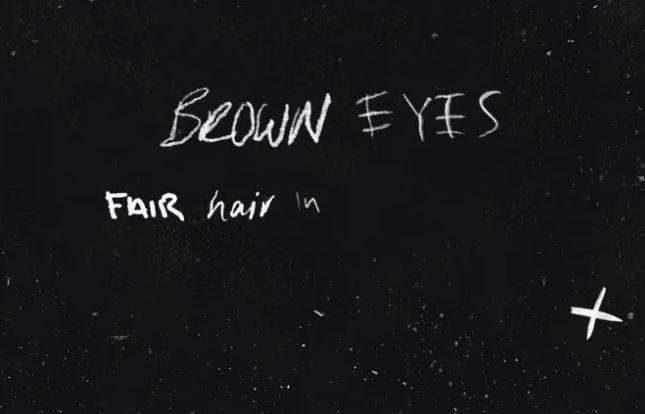 BROWN EYES
FAIR hair in